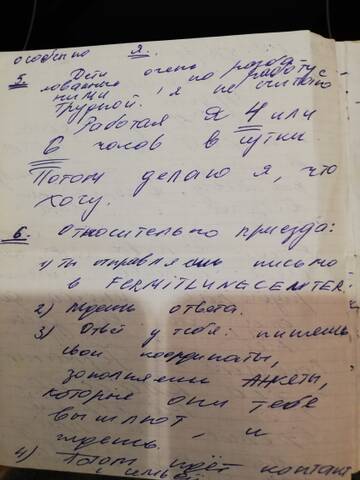 особенно я.
5. Дети очень разба
лованные, но работу с
ними я не считаю
трудной.
Работая я 4 или
6 часов в сутки
Потом делаю я, что
хочу.
6. Относительно приезда:
1) ты отправляешь письмо
в FERMITLUNGCENTER.
2) Ждешь ответа.
3) Ответ у тебя: пишешь
свои координаты,
заполняешь анкеты,
которые они тебе
вышлют, и
ждешь.
4) Потом идёт контакт
с семьёй